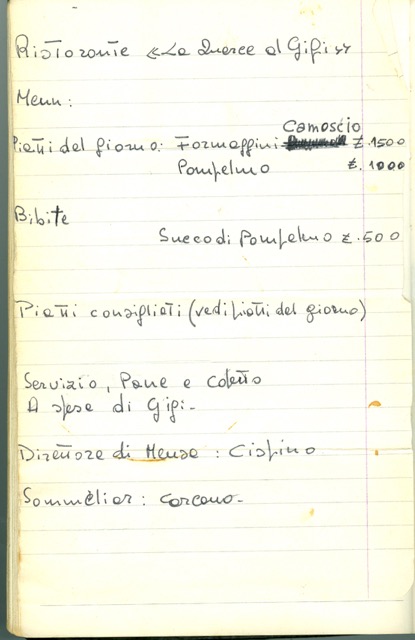 Ristorante «La Querce al Gigi»
Menu:
Camoscio
Piatti del giorno: Formaggini £.1500
Pompelmo £.1000
Bibite
Succo di Pompelmo £.500
Piatti consigliati (vedi piatti del giorno)
Servizio, Pane e Coperto
A spese di Gigi-
Direttore di Mensa : Cispino
Sommèlier : Carcano-